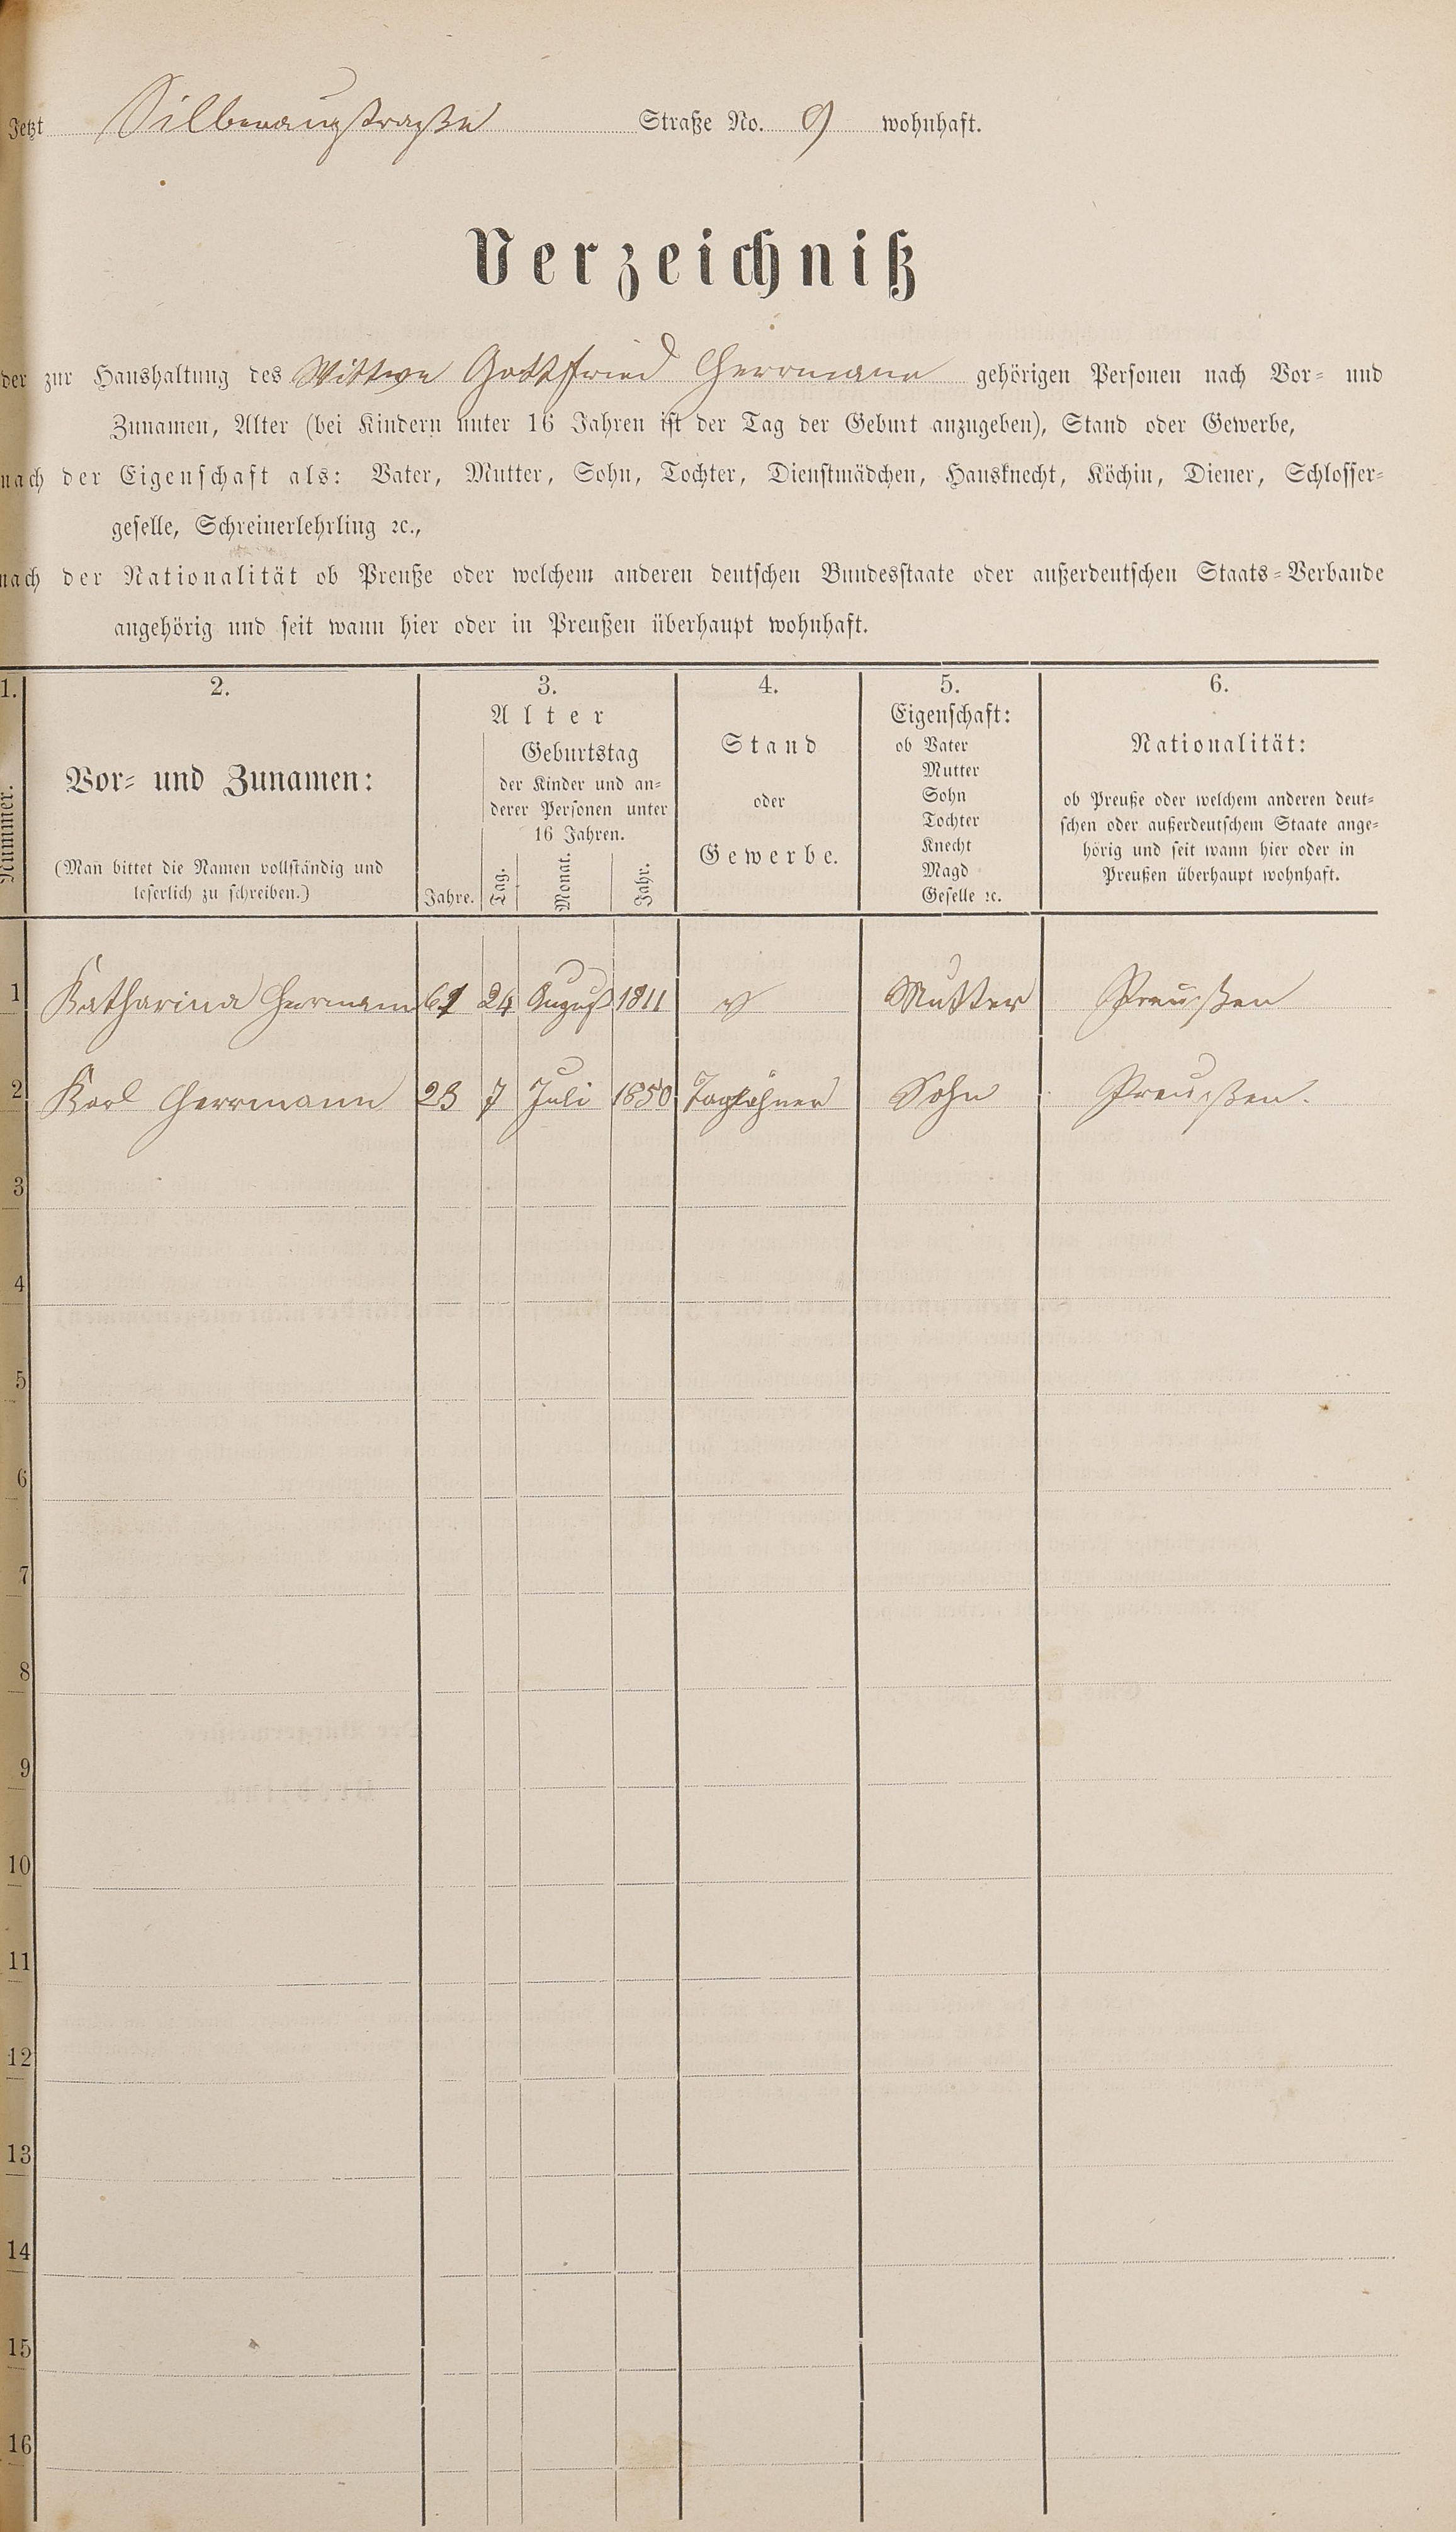 Jetzt Silberaugstraße Straße No. 9 wohnhaft.
Verzeichniß
der zur Haushaltung des Wittwe Gottfried Herrmann gehörigen Personen nach Vor- und
Zunamen, Alter (bei Kindern unter 16 Jahren ist der Tag der Geburt anzugeben), Stand oder Gewerbe,
nach der Eigenschaft als: Vater, Mutter, Sohn, Tochter, Dienstmädchen, Hausknecht, Köchin, Diener, Schlosser-
geselle, Schreinerlehrling ꝛc.,
nach der Nationalität ob Preuße oder welchem anderen deutschen Bundesstaate oder außerdeutschen Staats-Verbande
angehörig und seit wann hier oder in Preußen überhaupt wohnhaft.
1. 2. 3. 4. 5. 6.
Nummer.
Vor- und Zunamen:
(Man bittet die Namen vollständig und
leserlich zu schreiben.)
Alter
Jahre.
Geburtstag
der Kinder und an-
derer Personen unter
16 Jahren.
Tag. Monat. Jahr.
Stand
oder
Gewerbe.
Eigenschaft:
ob Vater
Mutter
Sohn
Tochter
Knecht
Magd
Geselle ꝛc.
Nationalität:
ob Preuße oder welchem anderen deut-
schen oder außerdeutschem Staate ange-
hörig und seit wann hier oder in
Preußen überhaupt wohnhaft.
1 Katharina Herrmann 24 August 1811 Mutter Preußen
2 Karl Herrmann 23 7 Juli 1850 Taglöhner Sohn Preußen.
3
4
5
6
7
8
9
10
11
12
13
14
15
16